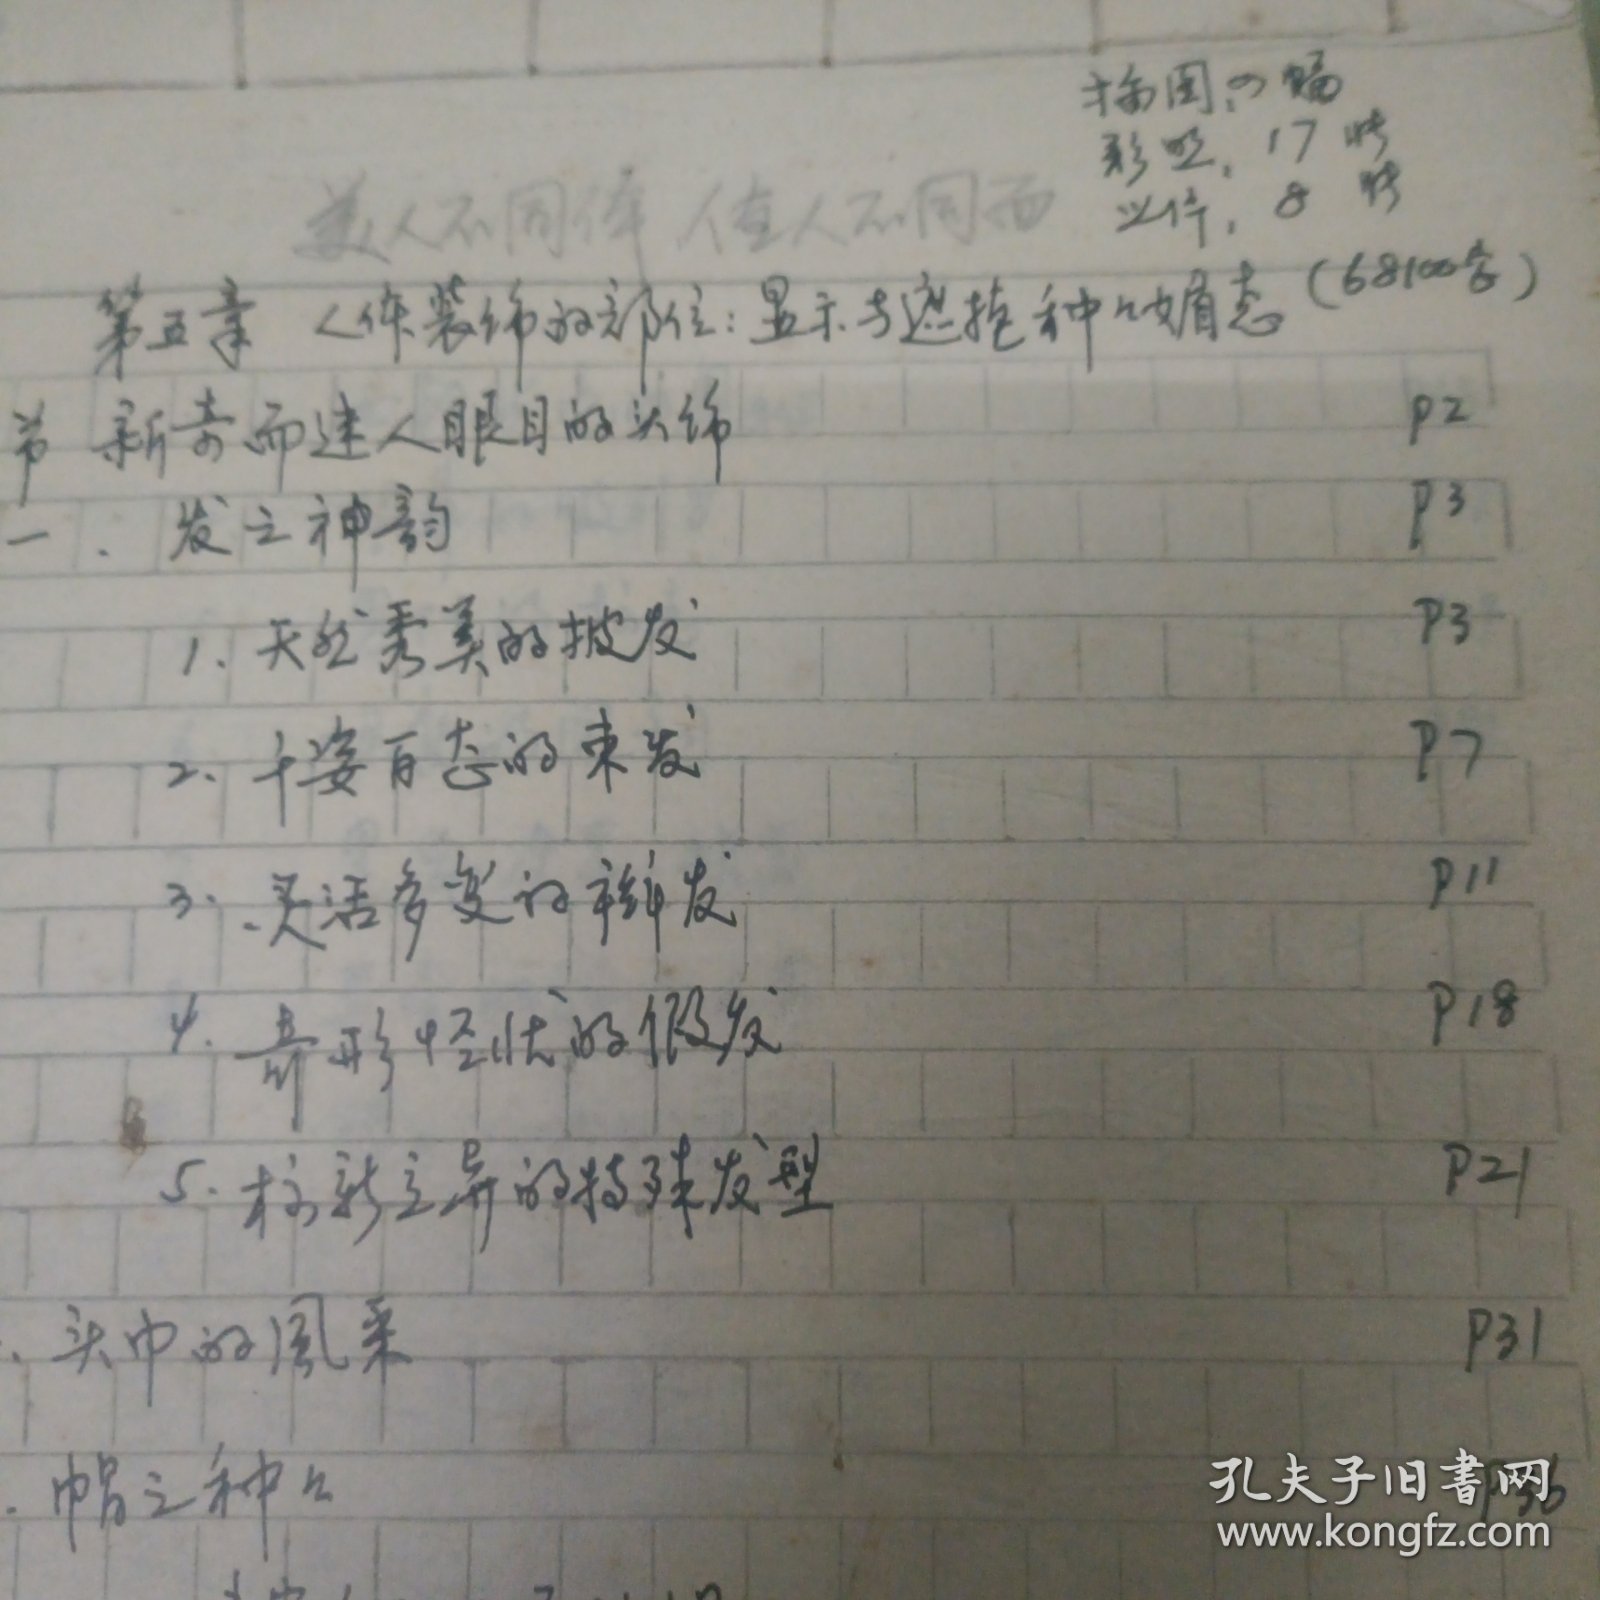 插图:
彩照, 17 帧
8 帧
美人不同体 佳人不同面
第五章 人体装饰的部位:显示与遮掩种々媚态(68100字)
节 新奇而迷人眼目的头饰 P2
一. 发之神韵 P3
1. 天然秀美的披发 P3
2. 千姿百态的束发 P7
3. 灵活多变的辫发 P11
4. 奇形怪状的假发 P18
5. 标新立异的特殊发型 P21
. 头巾的風采 P31
. 帽之种々 P36
孔夫子旧书网
www.kongfz.com